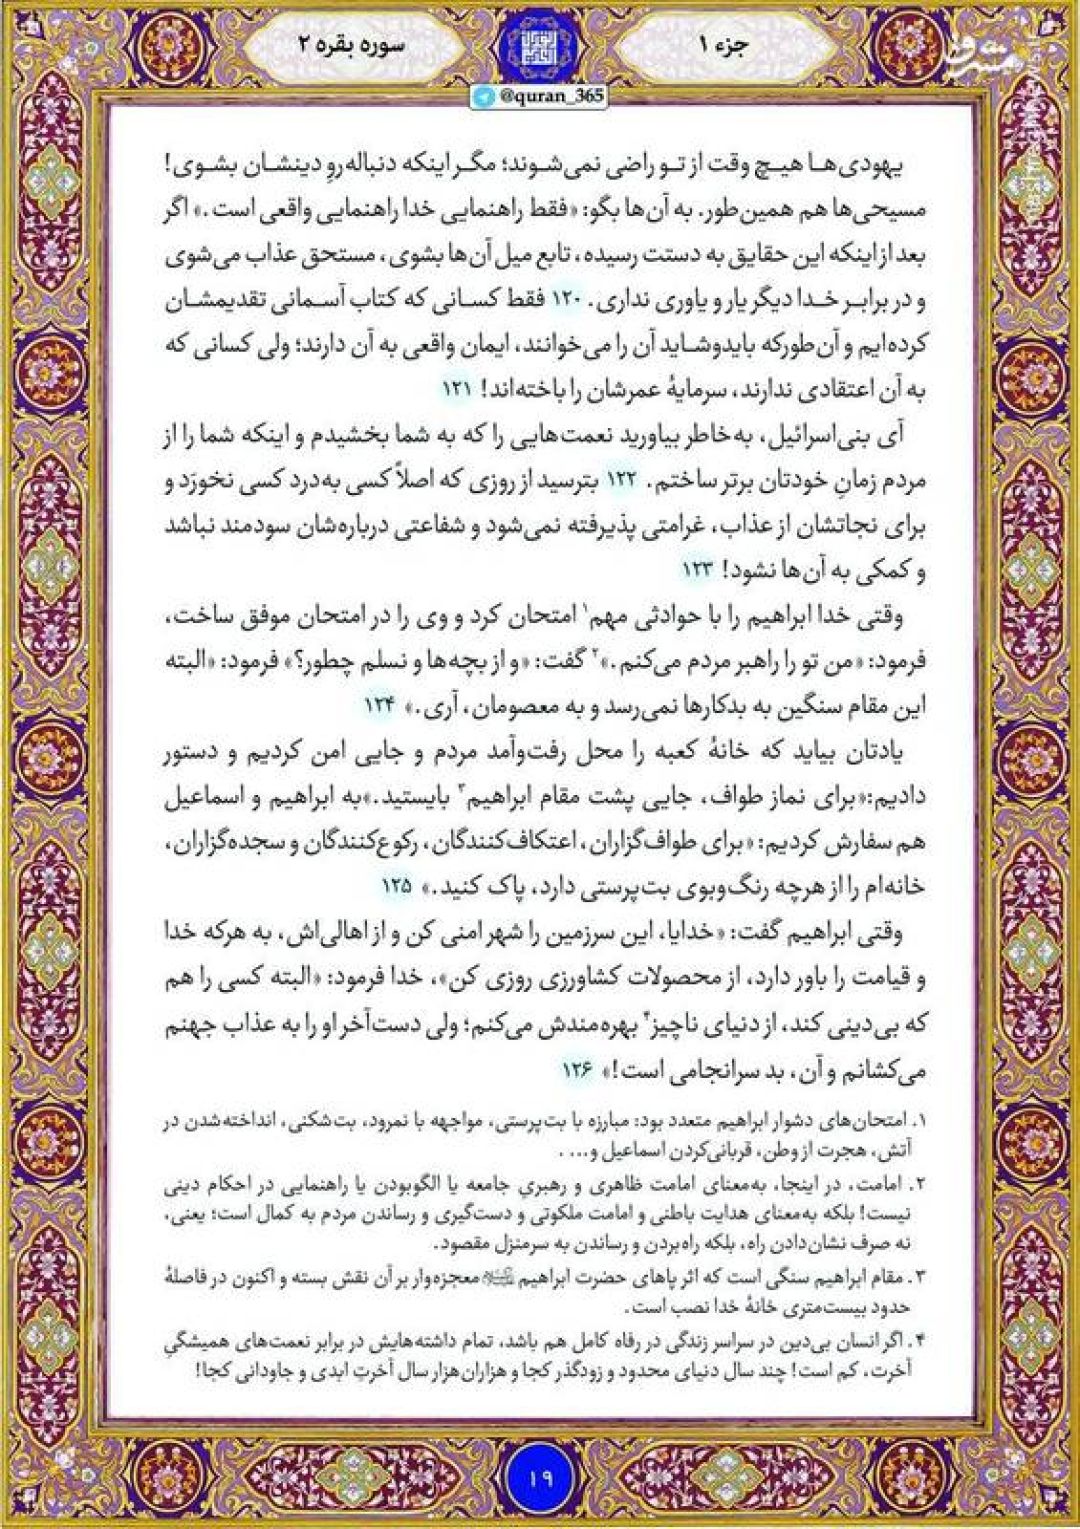 جزء ۱
سوره بقره ۲
@quran_365
یهودی‌ها هیچ وقت از تو راضی نمی‌شوند؛ مگر اینکه دنباله‌روِ دینشان بشوی!
مسیحی‌ها هم همین‌طور. به آن‌ها بگو: «فقط راهنمایی خدا راهنمایی واقعی است.» اگر
بعد از اینکه این حقایق به دستت رسیده، تابع میل آن‌ها بشوی، مستحق عذاب می‌شوی
و در برابر خدا دیگر یار و یاوری نداری. ۱۲۰ فقط کسانی که کتاب آسمانی تقدیمشان
کرده‌ایم و آن‌طورکه بایدوشاید آن را می‌خوانند، ایمان واقعی به آن دارند؛ ولی کسانی که
به آن اعتقادی ندارند، سرمایهٔ عمرشان را باخته‌اند! ۱۲۱
آی بنی‌اسرائیل، به‌خاطر بیاورید نعمت‌هایی را که به شما بخشیدم و اینکه شما را از
مردم زمانِ خودتان برتر ساختم. ۱۲۲ بترسید از روزی که اصلاً کسی به‌درد کسی نخورَد و
برای نجاتشان از عذاب، غرامتی پذیرفته نمی‌شود و شفاعتی درباره‌شان سودمند نباشد
و کمکی به آن‌ها نشود! ۱۲۳
وقتی خدا ابراهیم را با حوادثی مهم۱ امتحان کرد و وی را در امتحان موفق ساخت،
فرمود: «من تو را راهبر مردم می‌کنم.»۲ گفت: «و از بچه‌ها و نسلم چطور؟» فرمود: «البته
این مقام سنگین به بدکارها نمی‌رسد و به معصومان، آری.» ۱۲۴
یادتان بیاید که خانهٔ کعبه را محل رفت‌وآمد مردم و جایی امن کردیم و دستور
دادیم:«برای نماز طواف، جایی پشت مقام ابراهیم۳ بایستید.»به ابراهیم و اسماعیل
هم سفارش کردیم: «برای طواف‌گزاران، اعتکاف‌کنندگان، رکوع‌کنندگان و سجده‌گزاران،
خانه‌ام را از هرچه رنگ‌وبوی بت‌پرستی دارد، پاک کنید.» ۱۲۵
وقتی ابراهیم گفت: «خدایا، این سرزمین را شهر امنی کن و از اهالی‌اش، به هرکه خدا
و قیامت را باور دارد، از محصولات کشاورزی روزی کن»، خدا فرمود: «البته کسی را هم
که بی‌دینی کند، از دنیای ناچیز۴ بهره‌مندش می‌کنم؛ ولی دست‌آخر او را به عذاب جهنم
می‌کشانم و آن، بد سرانجامی است!» ۱۲۶
۱. امتحان‌های دشوار ابراهیم متعدد بود: مبارزه با بت‌پرستی، مواجهه با نمرود، بت‌شکنی، انداخته‌شدن در
آتش، هجرت از وطن، قربانی‌کردن اسماعیل و... .
۲. امامت، در اینجا، به‌معنای امامت ظاهری و رهبریِ جامعه یا الگوبودن یا راهنمایی در احکام دینی
نیست! بلکه به‌معنای هدایت باطنی و امامت ملکوتی و دست‌گیری و رساندن مردم به کمال است؛ یعنی،
نه صرف نشان‌دادن راه، بلکه راه‌بردن و رساندن به سرمنزل مقصود.
۳. مقام ابراهیم سنگی است که اثر پاهای حضرت ابراهیم معجزه‌وار بر آن نقش بسته و اکنون در فاصلهٔ
حدود بیست‌متری خانهٔ خدا نصب است.
۴. اگر انسان بی‌دین در سراسر زندگی در رفاه کامل هم باشد، تمام داشته‌هایش در برابر نعمت‌های همیشگیِ
آخرت، کم است! چند سال دنیای محدود و زودگذر کجا و هزاران‌هزار سال آخرتِ ابدی و جاودانی کجا!
۱۹